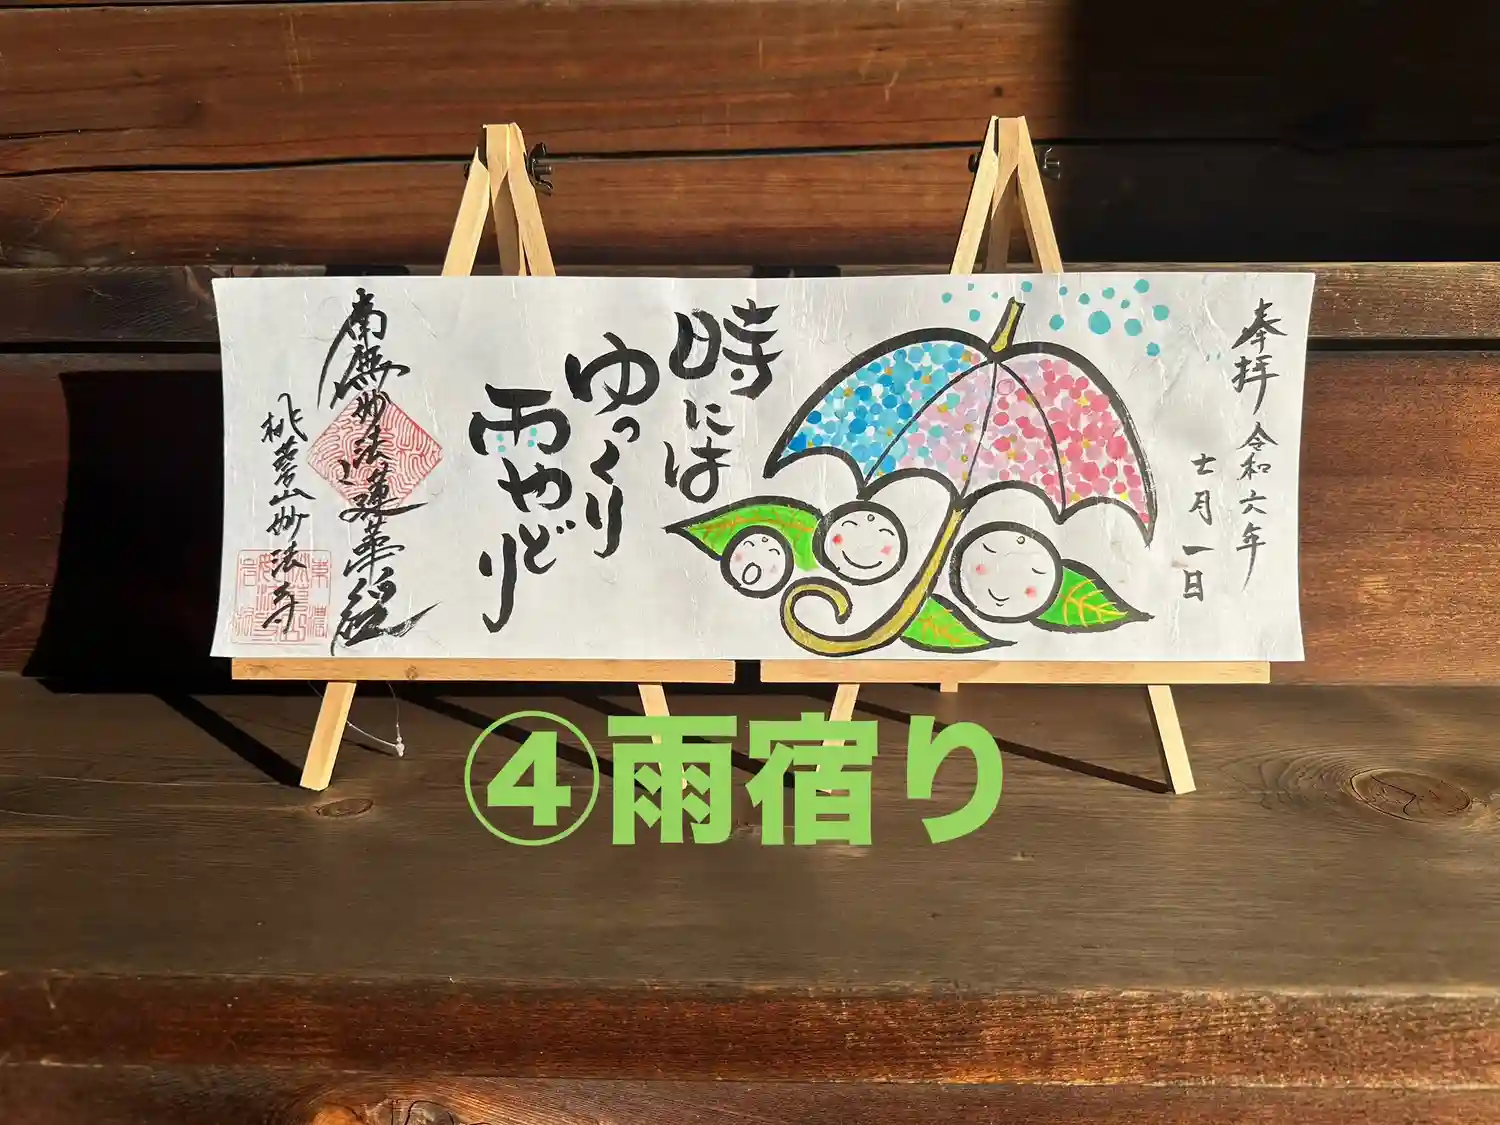 奉拝 令和六年
七月一日
時には
ゆっくり
雨やどり
南無妙法蓮華経
妙法寺
④雨宿り